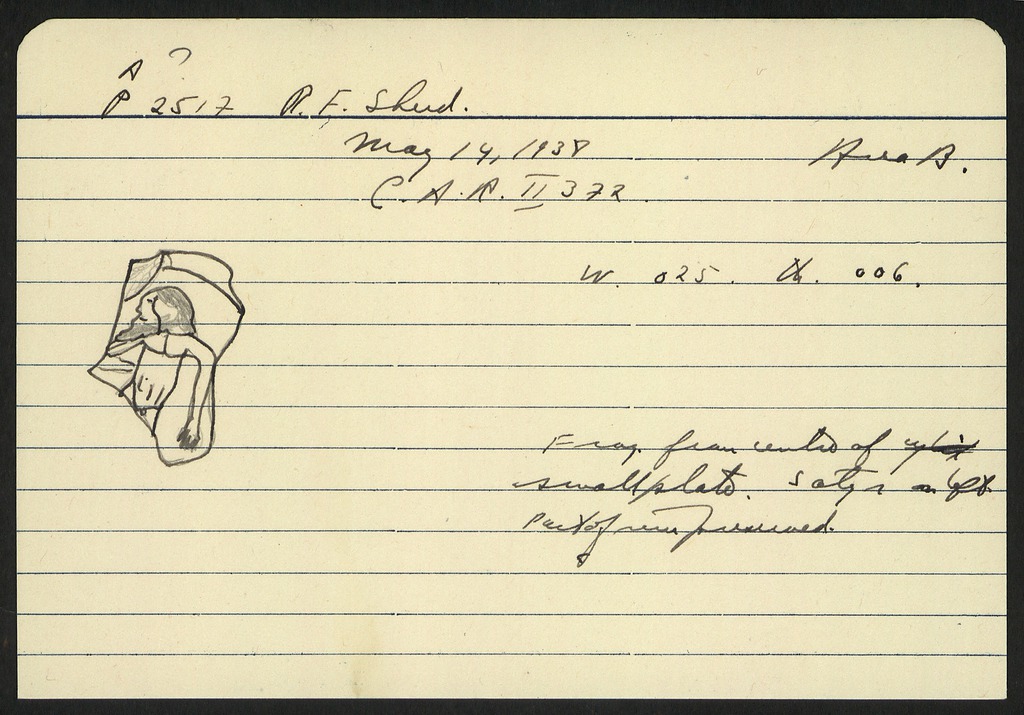 A ?
P 2517 R. F. Sherd.
May 14, 1938 Area B.
C. A. R. II 372
W. 025. th. 006.
Frag. from centre of
small plate. Satyr on left
Part of rim preserved.